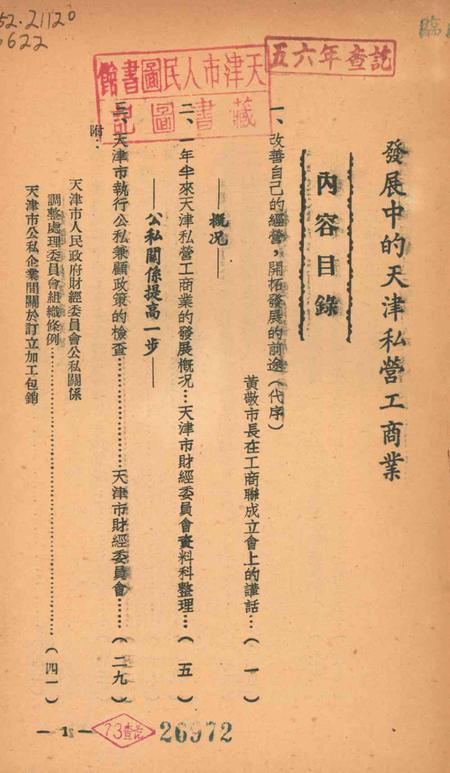 發展中的天津私營工商業
內容目錄
一、改善自己的經營，開拓發展的前途（代序）
黃敬市長在工商聯成立會上的講話…（一）
——概况——
二、一年半來天津私營工商業的發展概况…天津市財經委員會資料科整理…（五）
——公私關係提高一步——
三、天津市執行公私兼顧政策的檢查……天津市財經委員會……（二九）
附：
天津市人民政府財經委員會公私關係
調整處理委員會組織條例……（四一）
天津市公私企業間關於訂立加工包銷
五六年查訖
天津市人民圖書館
藏書圖記
52·21120
6622
73查訖
26972
— 1 —